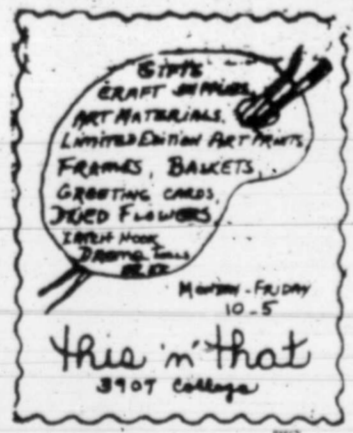 GIFTS
CRAFT SUPPLIES
ART MATERIALS,
LIMITED EDITION ART PRINTS
FRAMES, BASKETS,
GREETING CARDS,
DRIED FLOWERS
LATCH HOOK
MONDAY - FRIDAY
10 - 5
this 'n' that
3907 College